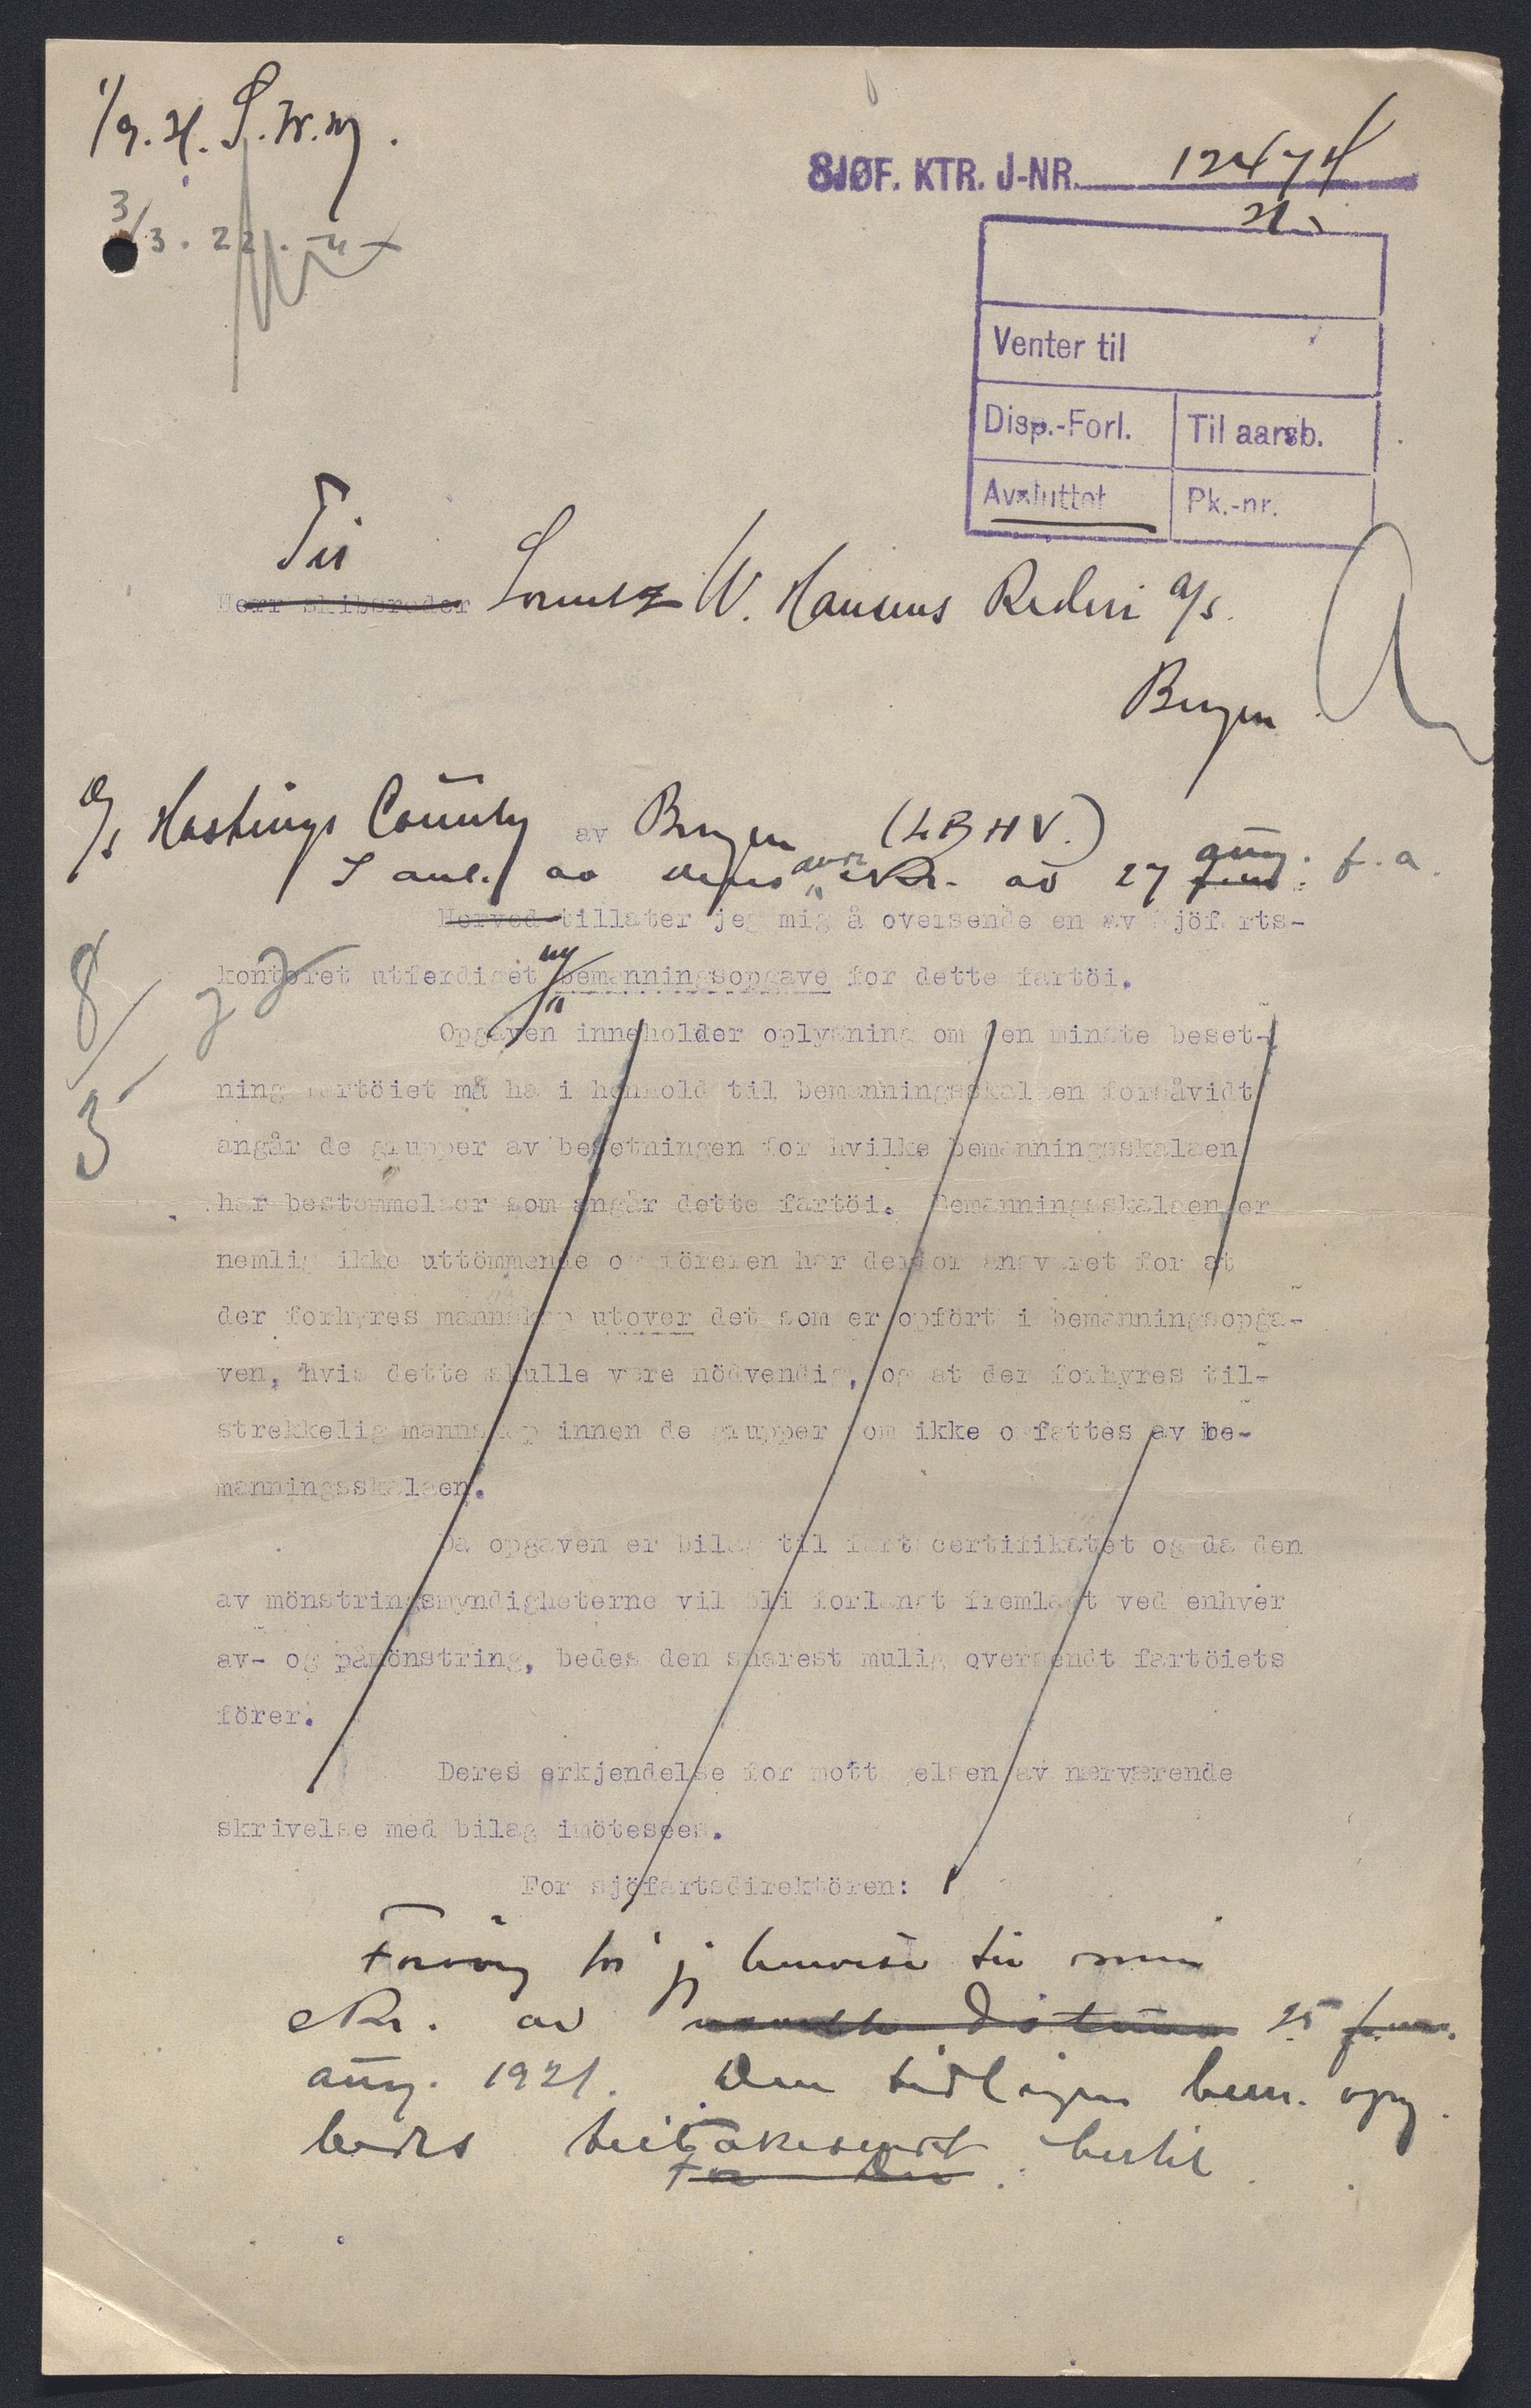 1/9. H. S. W. M.
3/3. 22.
SJØF. KTR. J-NR. 12474
Venter til
Disp.-Forl. Til aarsb.
Avsluttet Pk.-nr.
Til
Herr skibsreder Lorentz W. Hansens Rederi A/S.
Bergen
D/S Hastings County av Bergen (LBHV.)
I anl. av deres skr. av 27 aug. f. a.
Herved tillater jeg mig å oversende en av Sjöfarts-
kontoret utferdiget ny bemanningsopgave for dette fartöi.
8/3 22
Opgaven inneholder oplysning om den minste beset-
ning fartöiet må ha i henhold til bemanningsskalaen forsåvidt
angår de grupper av besetningen for hvilke bemanningsskalaen
har bestemmelser som angår dette fartöi. Bemanningsskalaen er
nemlig ikke uttömmende og föreren har derfor ansvaret for at
der forhyres mannskap utover det som er opfört i bemanningsopga-
ven, hvis dette skulle være nödvendig, og at der forhyres til-
strekkelig mannskap innen de grupper som ikke omfattes av be-
manningsskalaen.
Da opgaven er bilag til fartscertifikatet og da den
av mönstringsmyndigheterne vil bli forlangt fremlagt ved enhver
av- og påmönstring, bedes den snarest mulig oversendt fartöiets
förer.
Deres erkjendelse for mottagelsen av nærværende
skrivelse med bilag imötesees.
For sjöfartsdirektören:
Forövrig får jeg henvise til min
skr. av datum 25 f.m.
aug. 1921. Den tidligere bem. opg.
bedes tilbakesendt hertil.
For Den